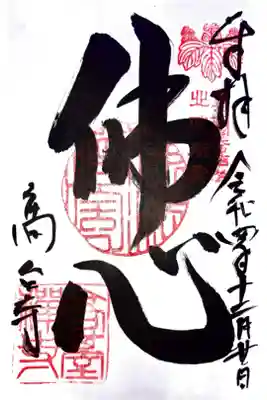 奉拝 令和四年十二月廿日
佛心
高台寺